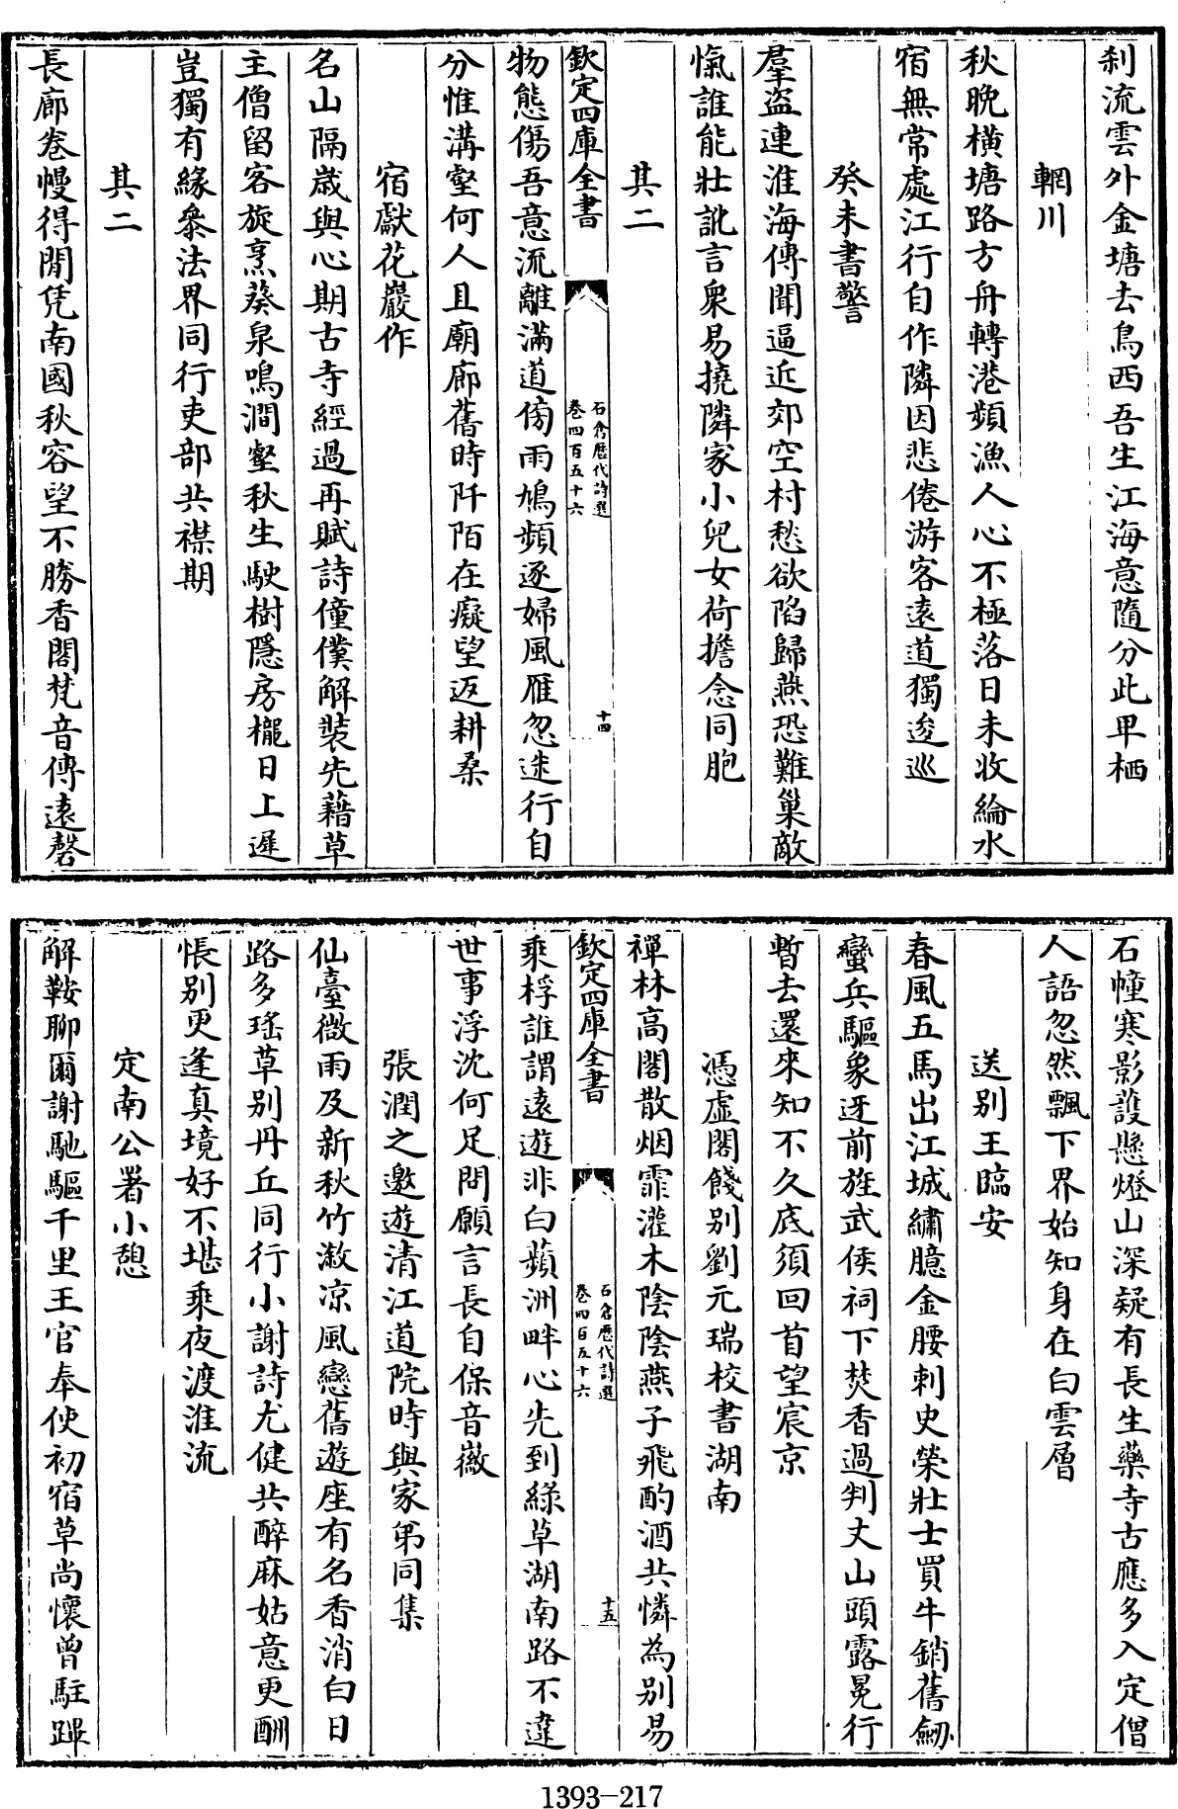 刹流雲外金塘去鳥西吾生江海意隨分此卑栖
輞川
秋晚橫塘路方舟轉港頻漁人心不極落日未收綸水
宿無常處江行自作隣因悲倦游客遠道獨逡巡
癸未書警
羣盜連淮海傳聞逼近郊空村愁欲陷歸燕恐難巢敵
愾誰能壯訛言衆易撓隣家小兒女荷擔念同胞
其二
欽定四庫全書
石倉歷代詩選
卷四百五十六
十四
物態傷吾意流離滿道傍雨鳩頻逐婦風雁忽迷行自
分惟溝壑何人且廟廊舊時阡陌在癡望返耕桑
宿獻花巖作
名山隔歲與心期古寺經過再賦詩僮僕解裝先藉草
主僧留客旋烹葵泉鳴澗壑秋生駛樹隱房櫳日上遲
豈獨有緣叅法界同行吏部共襟期
其二
長廊卷幔得閒凭南國秋容望不勝香閣梵音傳遠磬
石幢寒影護懸燈山深疑有長生藥寺古應多入定僧
人語忽然飄下界始知身在白雲層
送别王臨安
春風五馬出江城繡臆金腰刺史榮壯士買牛銷舊劒
蠻兵驅象迓前旌武侯祠下焚香過判丈山頭露冕行
暫去還來知不久底須回首望宸京
憑虛閣餞别劉元瑞校書湖南
禪林高閣散烟霏灌木陰陰燕子飛酌酒共憐為别易
欽定四庫全書
石倉歷代詩選
卷四百五十六
十五
乘桴誰謂遠遊非白蘋洲畔心先到綠草湖南路不違
世事浮沈何足問願言長自保音徽
張潤之邀遊清江道院時與家弟同集
仙臺微雨及新秋竹潄凉風戀舊遊座有名香消白日
路多瑤草别丹丘同行小謝詩尤健共醉麻姑意更酬
悵别更逢真境好不堪乘夜渡淮流
定南公署小憩
解鞍聊爾謝馳驅千里王官奉使初宿草尚懷曾駐蹕
1393-217